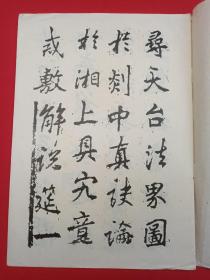 尋天台法界圖
於剡中真訣論
於湘上具究竟
或敷解說筵一